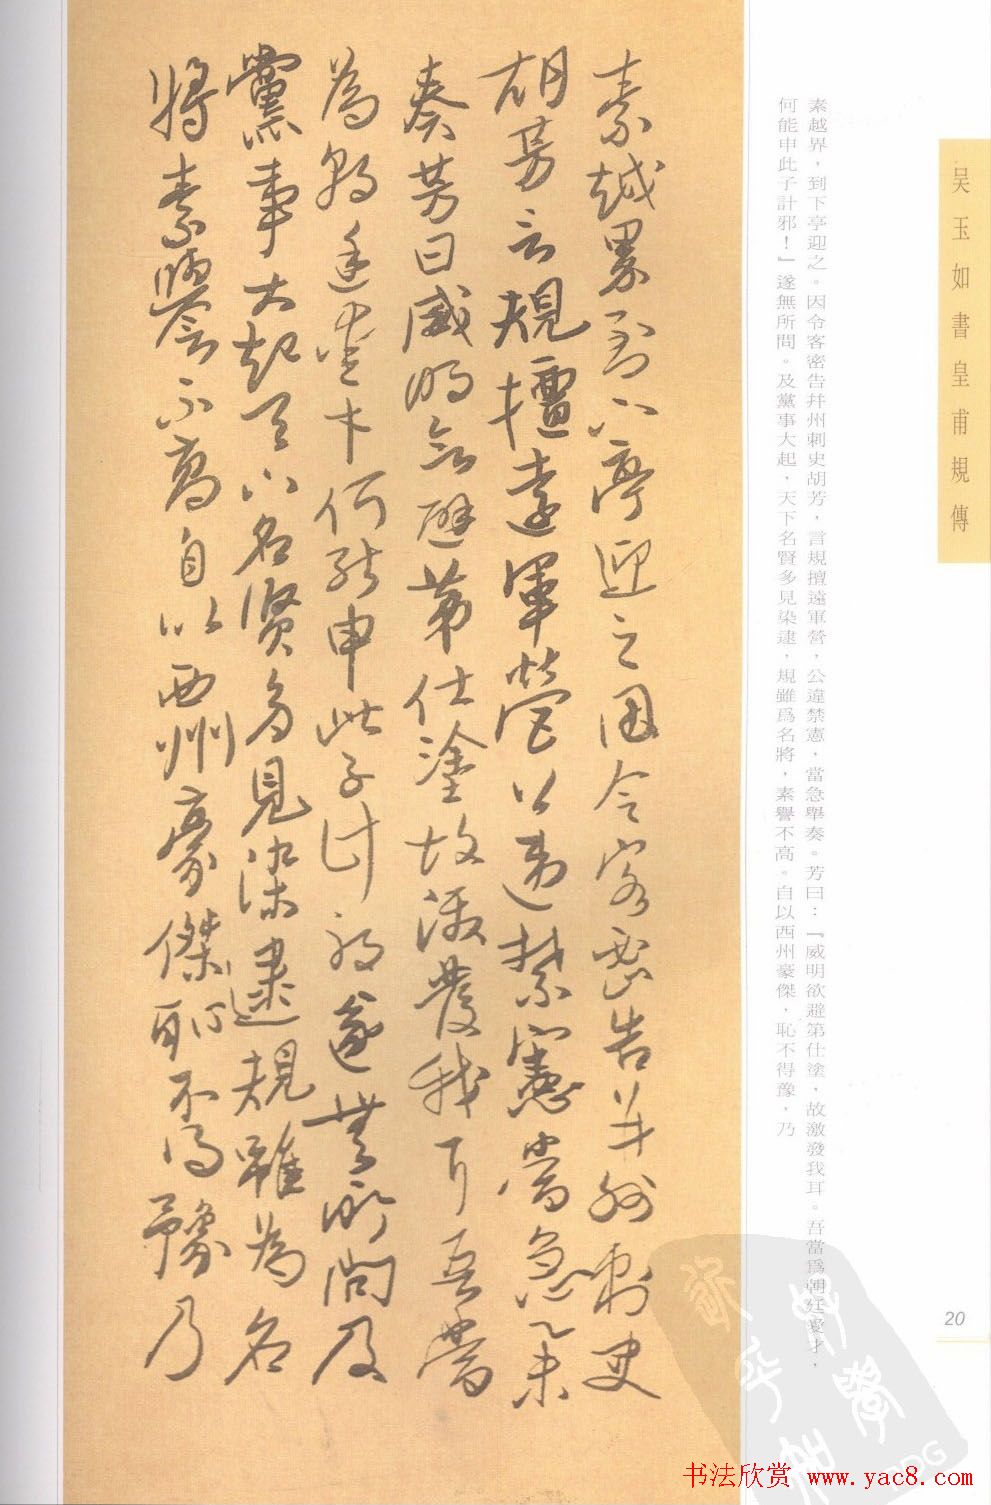 吴玉如書皇甫規傳
素越界，到下亭迎之。因令客密告幷州刺史胡芳，言規擅遠軍營，公違禁憲，當急舉奏。芳曰：『威明欲避第仕塗，故激發我耳。吾當爲朝廷愛才，
何能申此子計邪！』遂無所問。及黨事大起，天下名賢多見染逮，規雖爲名將，素譽不高。自以西州豪傑，恥不得豫，乃
素越界到下亭迎之因令客密告并州刺史
胡芳言規擅遠軍營公違禁憲當急舉
奏芳曰威明欲避第仕塗故激發我耳吾當
為朝廷愛才何能申此子計邪遂無所問及
黨事大起天下名賢多見染逮規雖為名
將素譽不高自以西州豪傑恥不得豫乃
20
书法欣赏 www.yac8.com